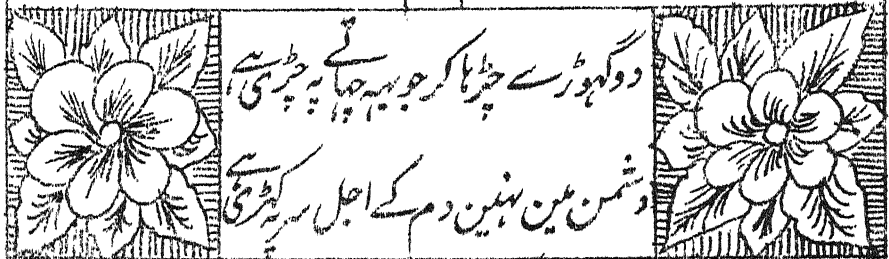 دو گہوڑے چڑہا کر جو یہہ چہاتے پہ چڑی ہے
دشمن مین نہین دم کے اجل سر پہ کہڑی ہے